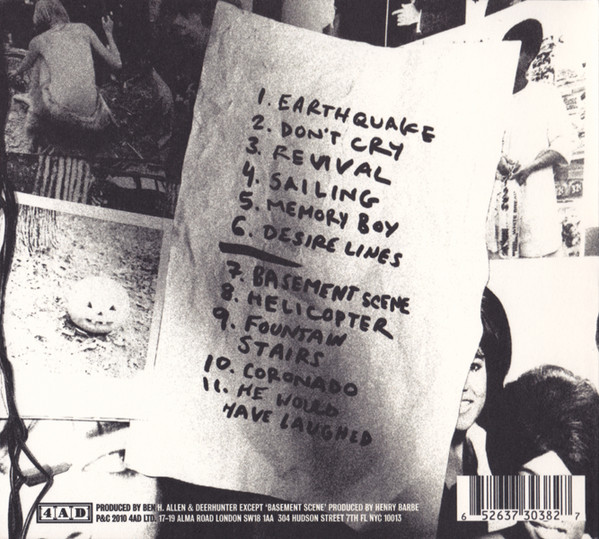 1. EARTHQUAKE
2. DON'T CRY
3. REVIVAL
4. SAILING
5. MEMORY BOY
6. DESIRE LINES
7. BASEMENT SCENE
8. HELICOPTER
9. FOUNTAIN
STAIRS
10. CORONADO
11. HE WOULD
HAVE LAUGHED
4AD
PRODUCED BY BEN H. ALLEN & DEERHUNTER EXCEPT 'BASEMENT SCENE' PRODUCED BY HENRY BARBE
P&C 2010 4AD LTD. 17-19 ALMA ROAD LONDON SW18 1AA 304 HUDSON STREET 7TH FL NYC 10013
6 52637 30382 7